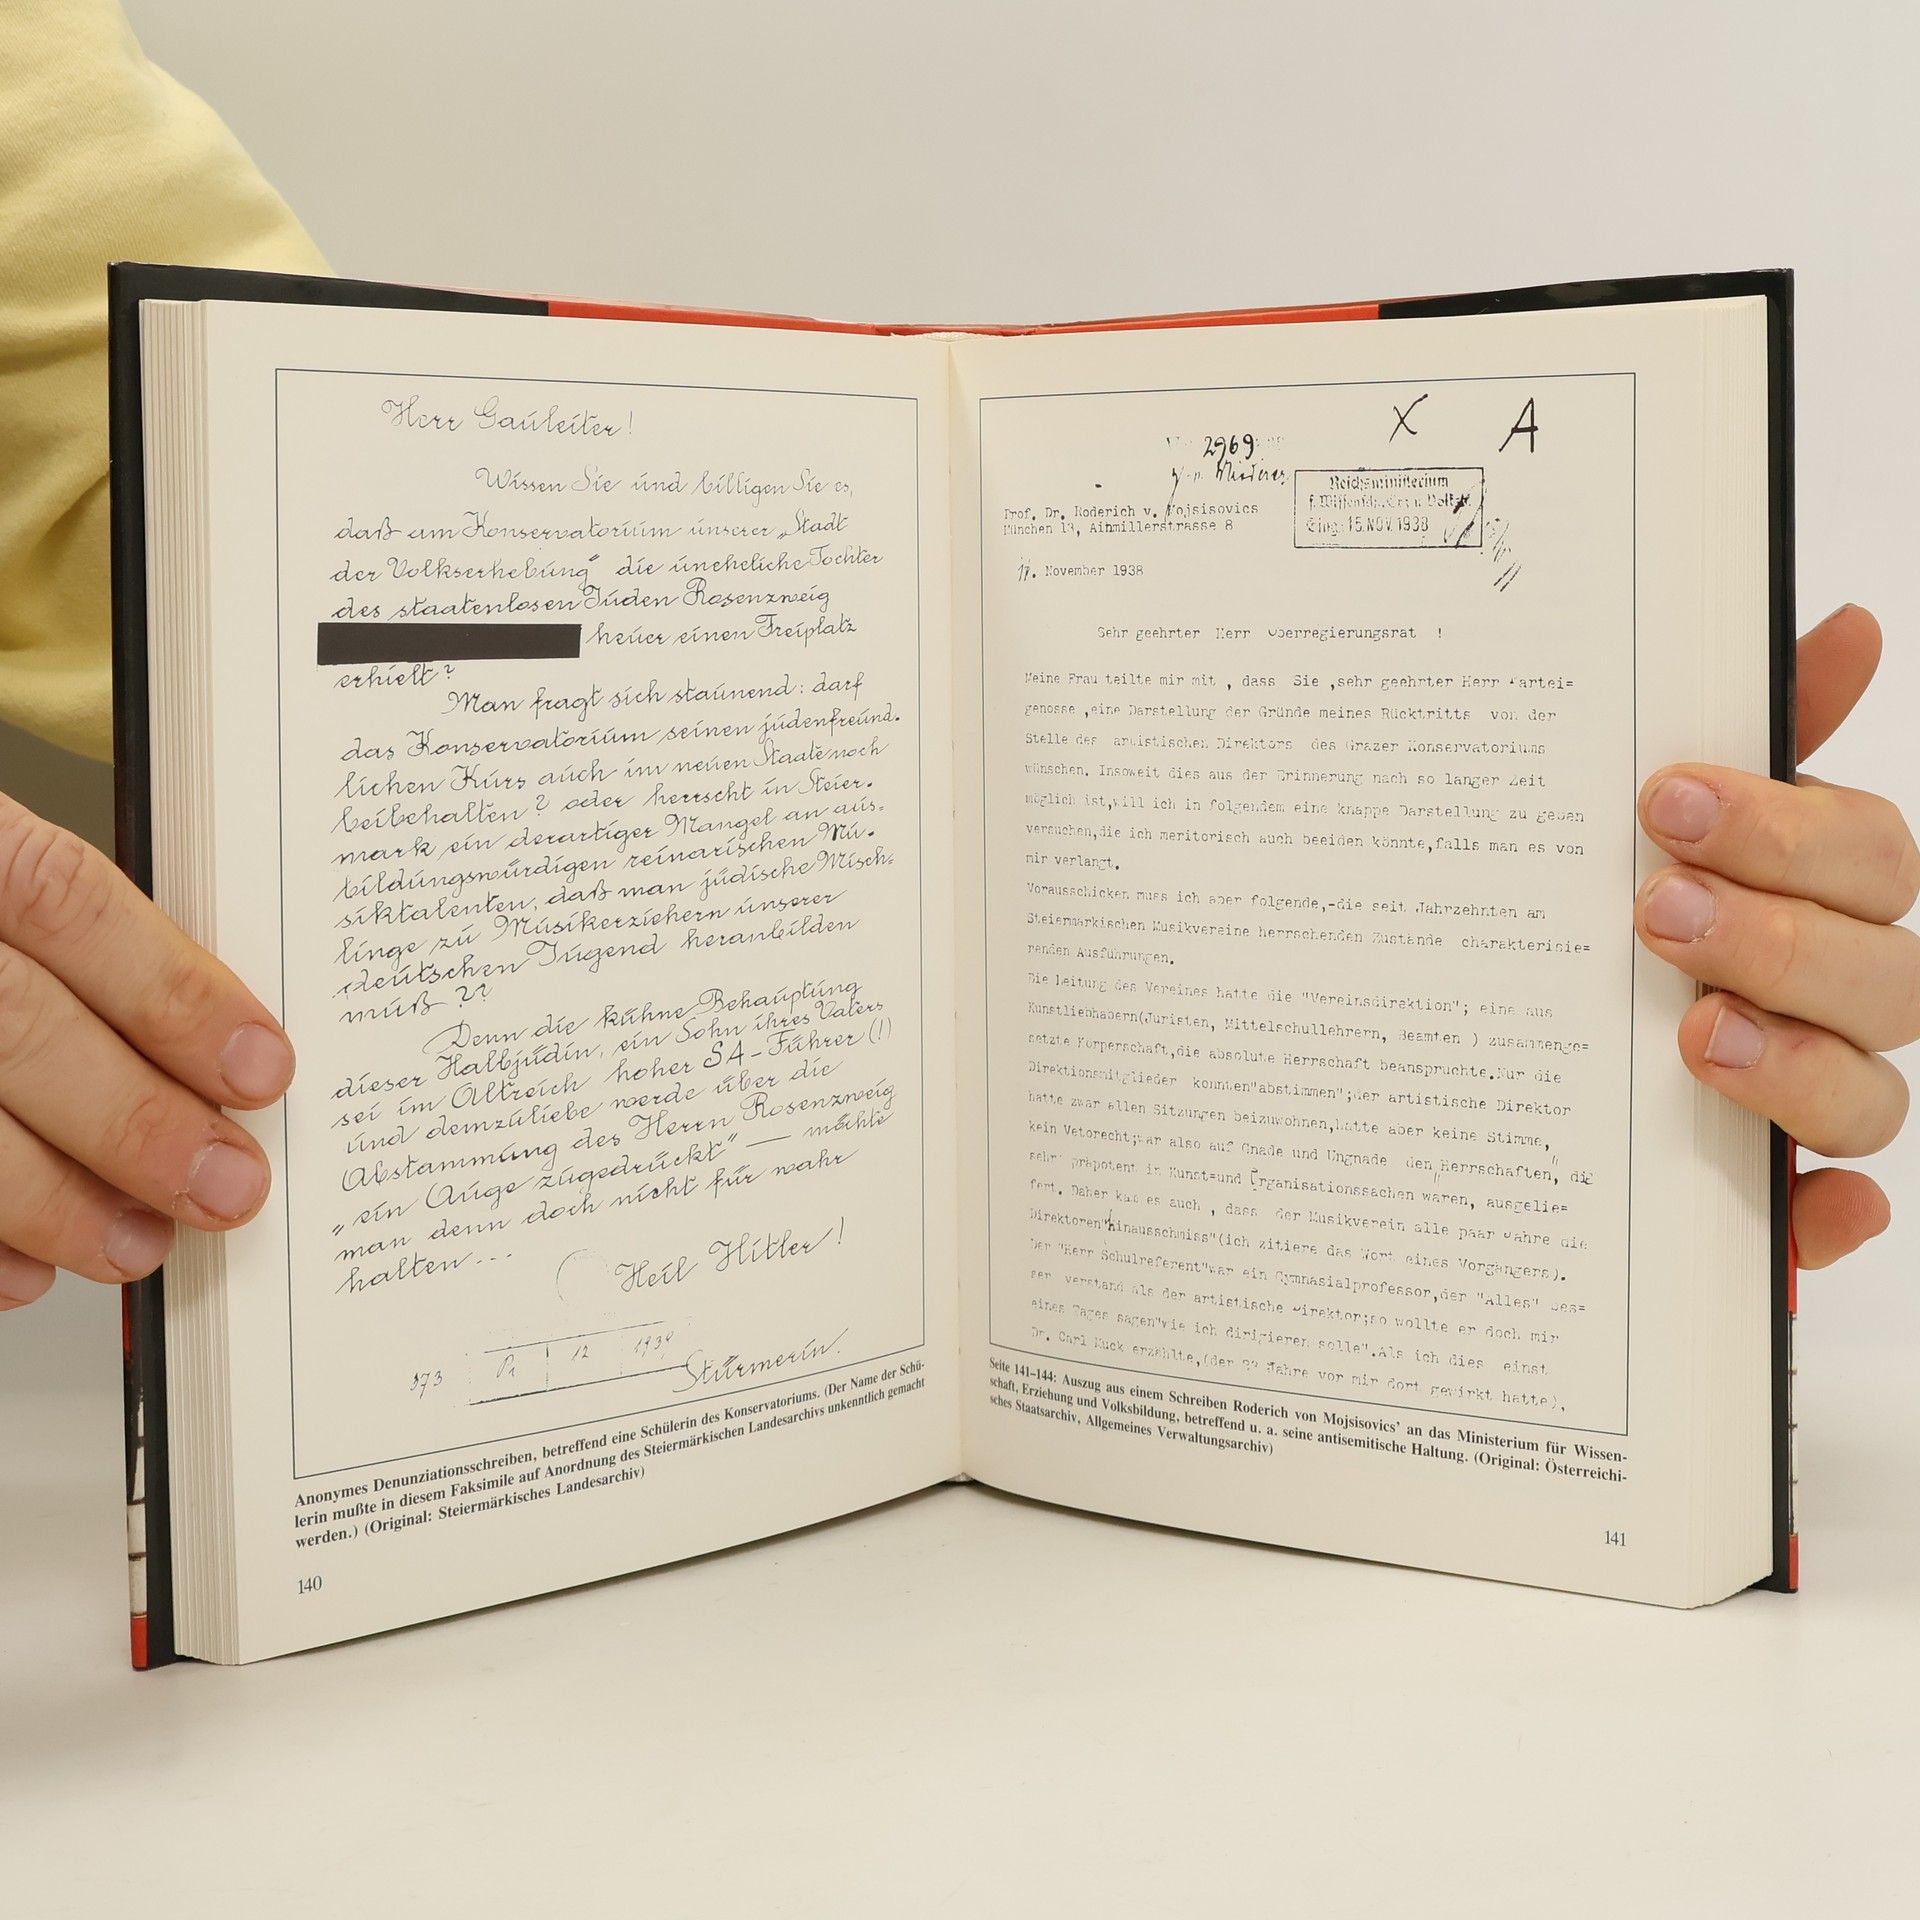 Herr Gauleiter!
Wissen Sie und billigen Sie es,
daß am Konservatorium unserer „Stadt
der Volkserhebung“ die uneheliche Tochter
des staatenlosen Juden Rosenzweig
heuer einen Freiplatz
erhielt?
Man fragt sich staunend: darf
das Konservatorium seinen judenfreund-
lichen Kurs auch im neuen Staate noch
beibehalten? oder herrscht in Steier-
mark ein derartiger Mangel an aus-
bildungswürdigen reinarischen Mu-
siktalenten, daß man jüdische Misch-
linge zu Musikerziehern unserer
deutschen Jugend heranbilden
muß??
Denn die kühne Behauptung
dieser Halbjüdin, ein Sohn ihres Vaters
sei im Altreich hoher SA-Führer (!)
und demzuliebe werde über die
Abstammung des Herrn Rosenzweig
„ein Auge zugedrückt“ — möchte
man denn doch nicht für wahr
halten...
Heil Hitler!
373 Pr 12 1939
Stürmerin.
Anonymes Denunziationsschreiben, betreffend eine Schülerin des Konservatoriums. (Der Name der Schü-
lerin mußte in diesem Faksimile auf Anordnung des Steiermärkischen Landesarchivs unkenntlich gemacht
werden.) (Original: Steiermärkisches Landesarchiv)
140
X A
2969
Reichsministerium
Eing. 15. NOV. 1938
Prof. Dr. Roderich v. Mojsisovics
München 13, Ainmillerstrasse 8
November 1938
Sehr geehrter Herr Oberregierungsrat !
Meine Frau teilte mir mit , dass Sie ,sehr geehrter Herr Partei=
genosse ,eine Darstellung der Gründe meines Rücktritts von der
Stelle des artistischen Direktors des Grazer Konservatoriums
wünschen. Insoweit dies aus der Erinnerung nach so langer Zeit
möglich ist,will ich in folgendem eine knappe Darstellung zu geben
versuchen,die ich meritorisch auch beeiden könnte,falls man es von
mir verlangt.
Vorausschicken muss ich aber folgende,-die seit Jahrzehnten am
Steiermärkischen Musikvereine herrschenden Zustände charakterisie=
renden Ausführungen.
Die Leitung des Vereines hatte die "Vereinsdirektion"; eine aus
Kunstliebhabern(Juristen, Mittelschullehrern, Beamten ) zusammenge=
setzte Körperschaft,die absolute Herrschaft beanspruchte.Nur die
Direktionsmitglieder konnten"abstimmen";der artistische Direktor
hatte zwar allen Sitzungen beizuwohnen,hatte aber keine Stimme,
kein Vetorecht;war also auf Gnade und Ungnade den "Herrschaften," die
sehr präpotent in Kunst=und Organisationssachen waren, ausgelie=
fert. Daher kam es auch , dass der Musikverein alle paar Jahre die
Direktoren"hinausschmiss"(ich zitiere das Wort eines Vorgängers).
Der "Herr Schulreferent"war ein Gymnasialprofessor,der "Alles" bes=
ser verstand als der artistische Direktor;so wollte er doch mir
eines Tages sagen"wie ich dirigieren solle".Als ich dies einst
Dr. Carl Muck erzählte,(der Jahre vor mir dort gewirkt hatte),
Seite 141–144: Auszug aus einem Schreiben Roderich von Mojsisovics’ an das Ministerium für Wissen-
schaft, Erziehung und Volksbildung, betreffend u. a. seine antisemitische Haltung. (Original: Österreichi-
sches Staatsarchiv, Allgemeines Verwaltungsarchiv)
141